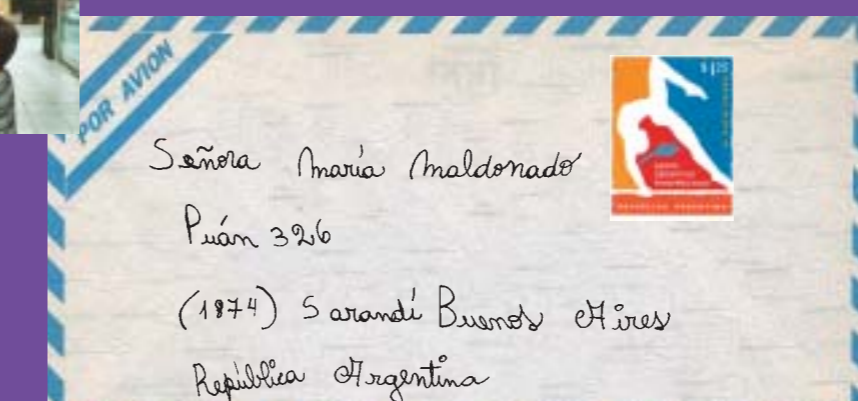 POR AVION
$1,25
Señora María Maldonado
Puán 326
(1874) Sarandí Buenos Aires
República Argentina
REPUBLICA ARGENTINA